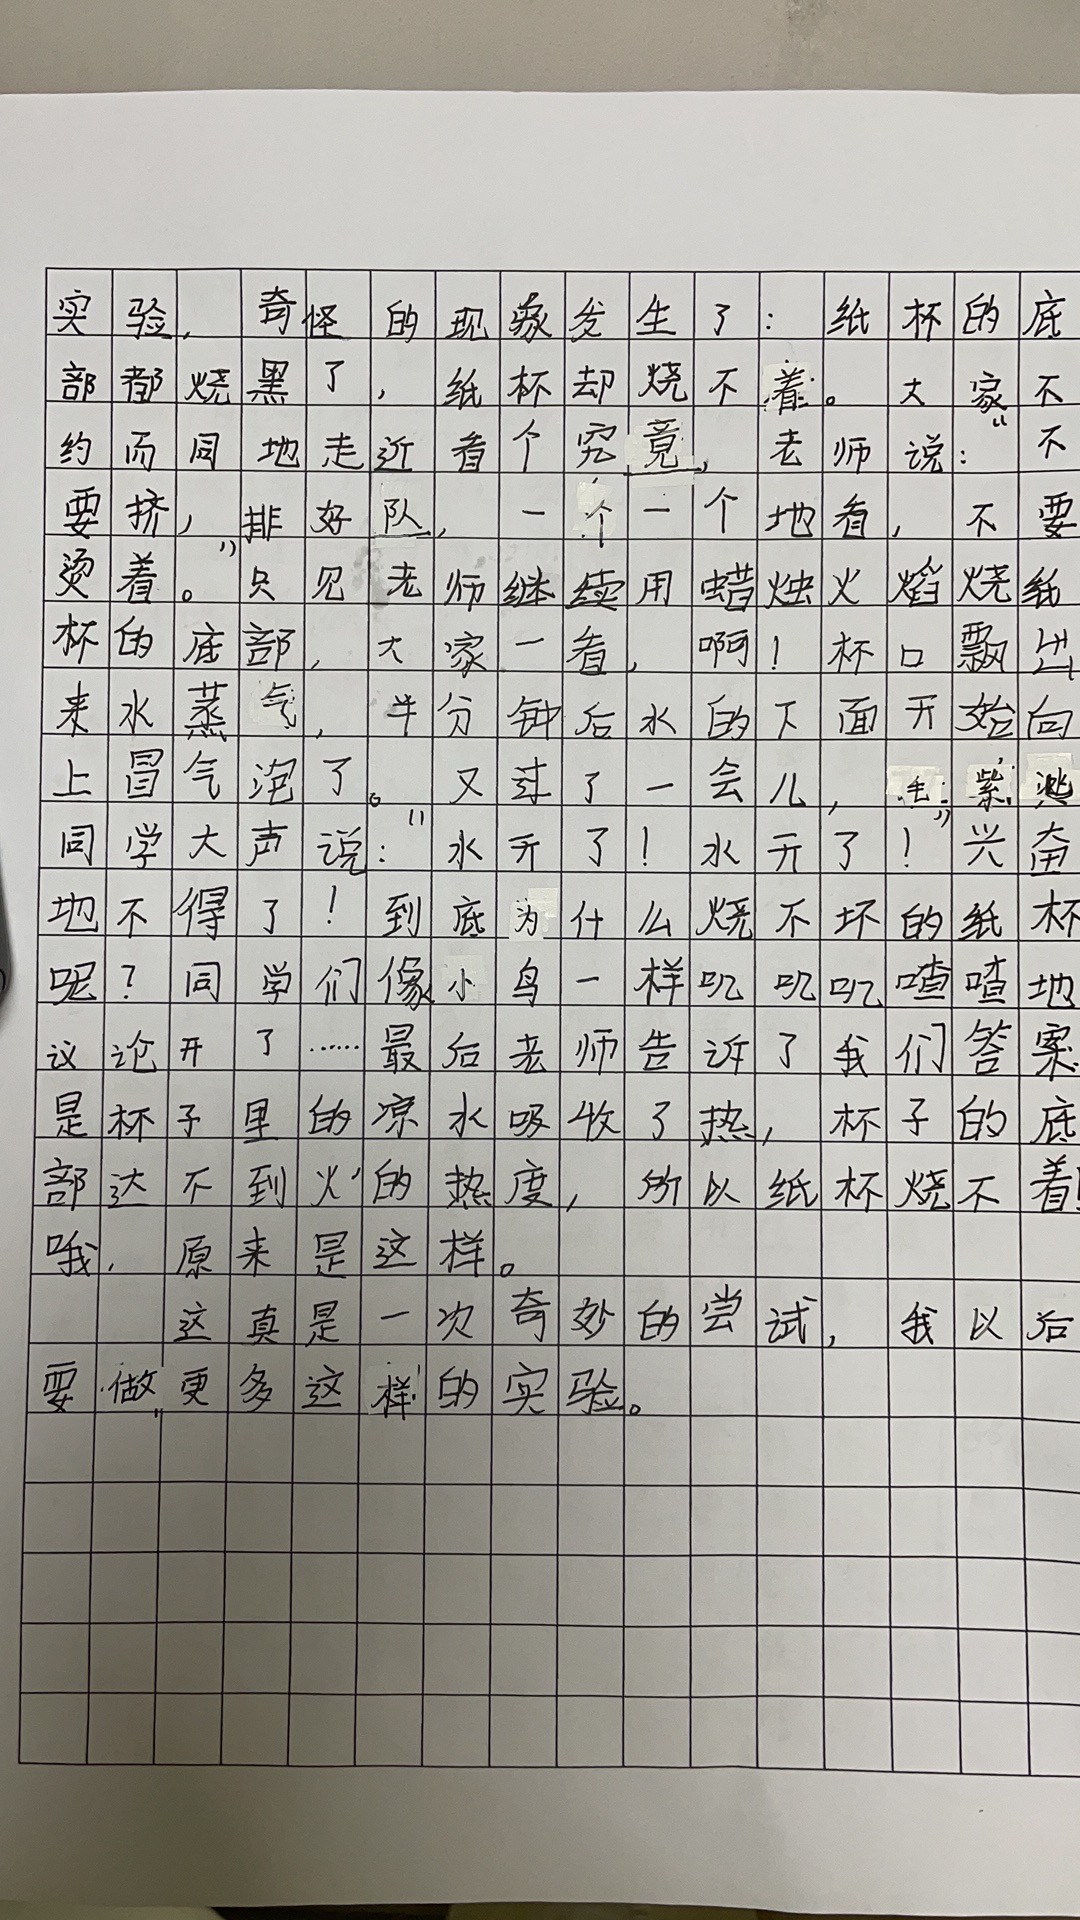 实验，奇怪的现象发生了：纸杯的底
部都烧黑了，纸杯却烧不着。大家不
约而同地走近看个究竟，老师说：“不
要挤，排好队，一个一个地看，不要
烫着。”只见老师继续用蜡烛火焰烧纸
杯的底部，大家一看，啊！杯口飘出
来水蒸气，半分钟后水的下面开始向
上冒气泡了。又过了一会儿，毛紫
同学大声说：“水开了！水开了！”兴奋
地不得了！到底为什么烧不坏的纸杯
呢？同学们像小鸟一样叽叽叽喳喳地
议论开了……最后老师告诉了我们答案
是杯子里的凉水吸收了热，杯子的底
部达不到火的热度，所以纸杯烧不着！
哦，原来是这样。
这真是一次奇妙的尝试，我以后
要做更多这样的实验。